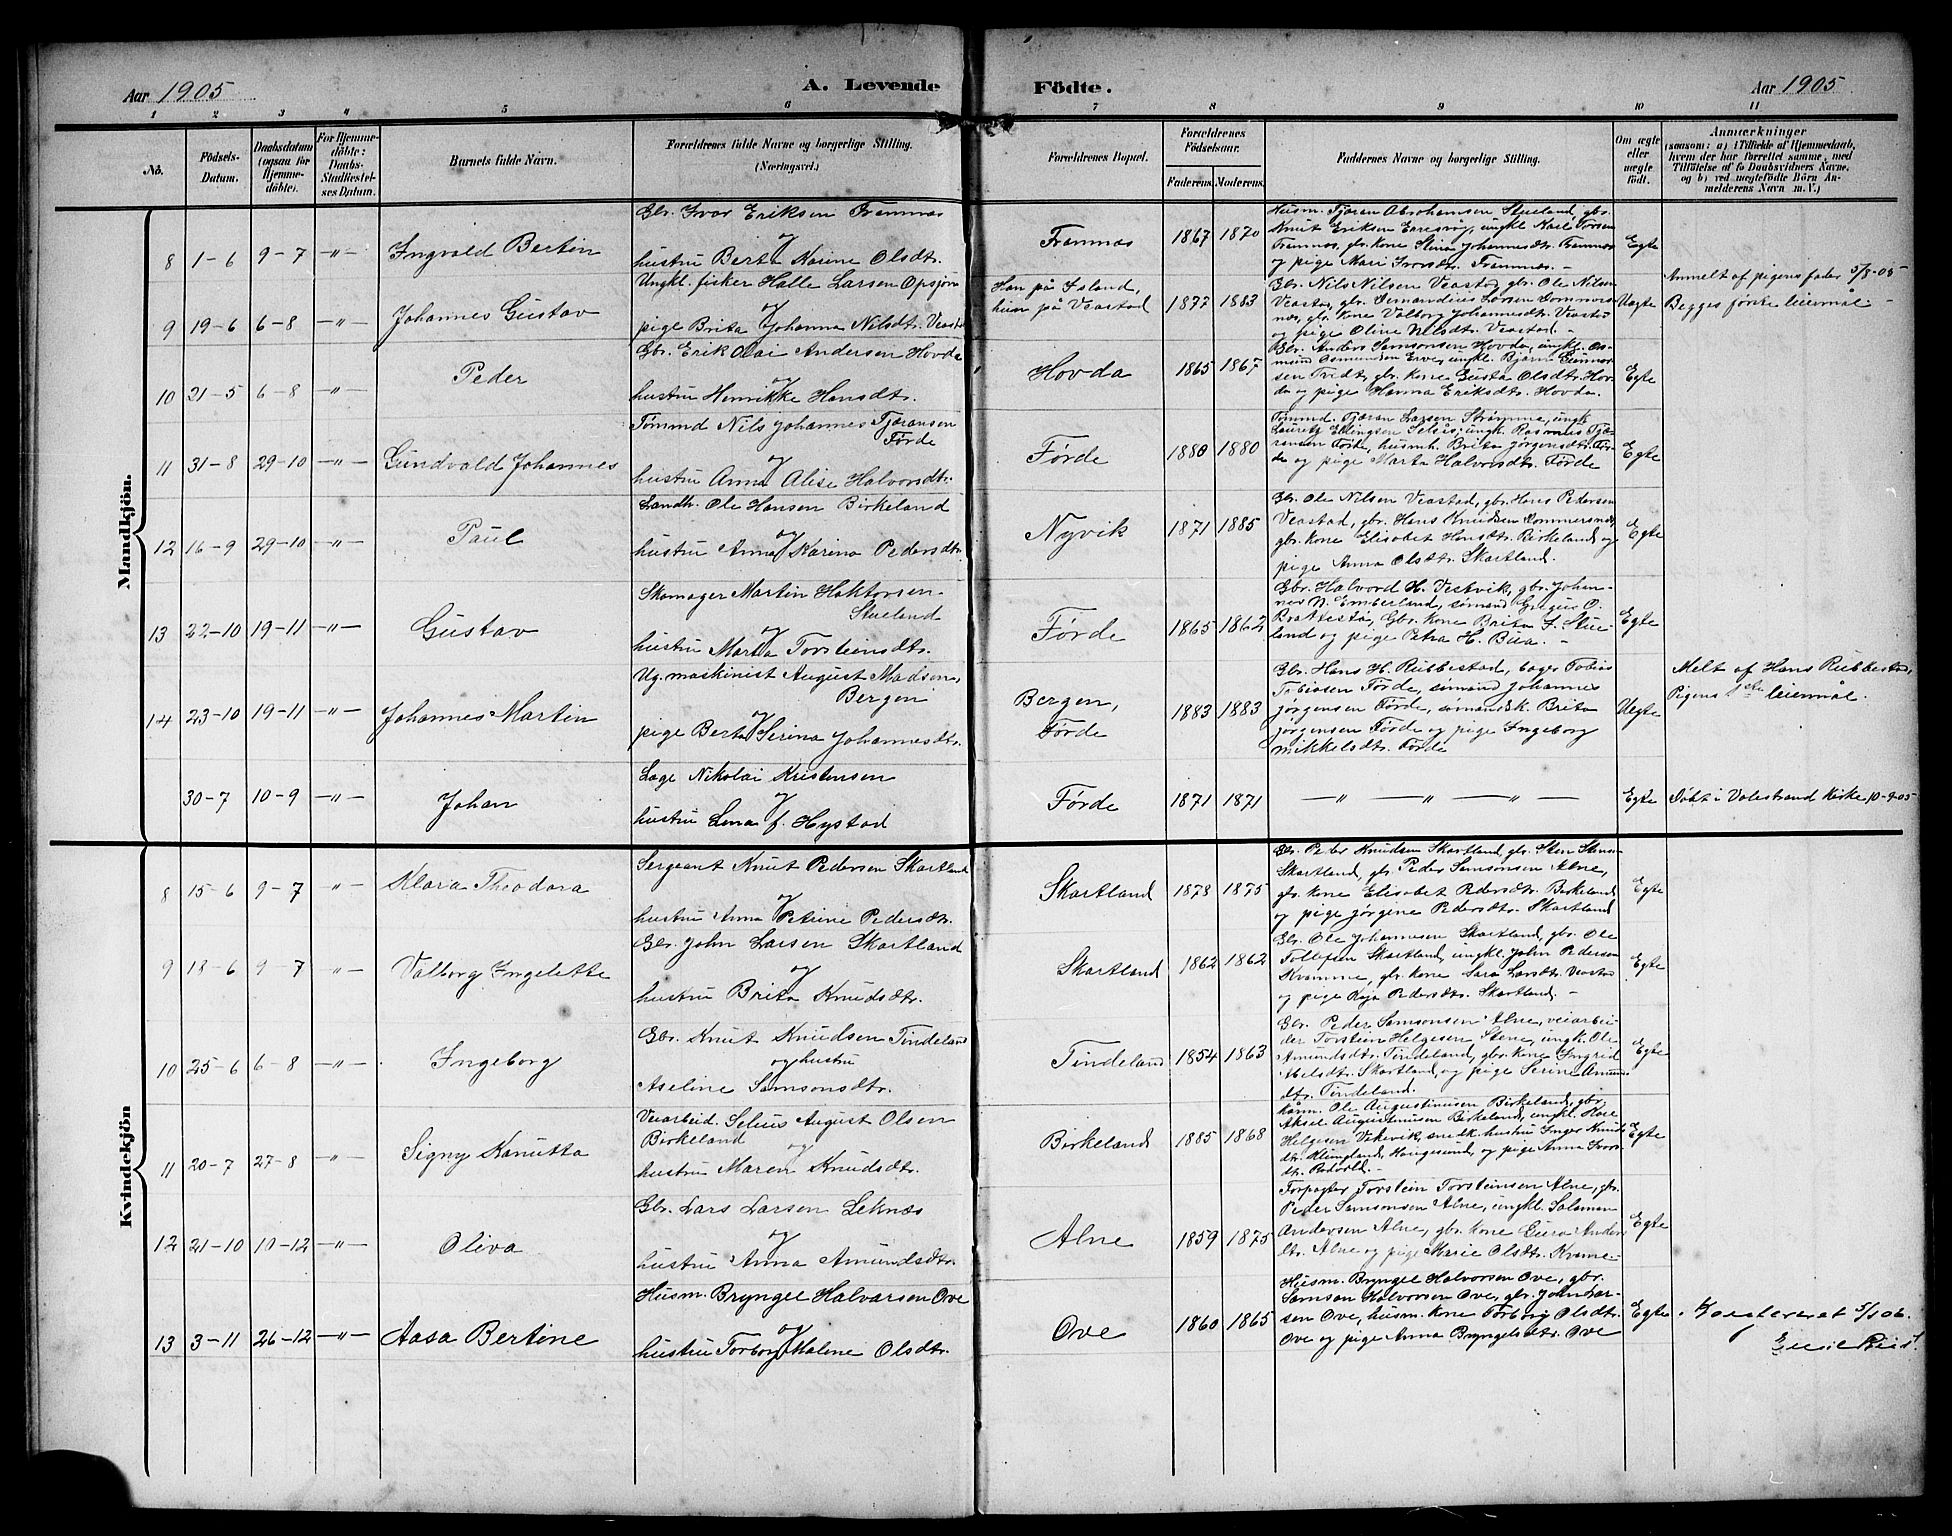 Aar 1905
A. Levende
Födte.
Aar 1905
1 2 3 4 5 6 7 8 9 10 11
No.
Födsels-
Datum.
Daabsdatum
(ogsaa for
Hjemme-
döbte).
For Hjemme-
döbte:
Daabs-
Stadfæstel-
ses Datum.
Barnets fulde Navn.
Forældrenes fulde Navne og borgerlige Stilling.
(Næringsvei.)
Forældrenes Bopæl.
Forældrenes
Födselsaar.
Faderens. Moderens.
Faddernes Navne og borgerlige Stilling.
Om ægte
eller
uægte
födt.
Anmærkninger
(saasom: a) i Tilfælde af Hjemmedaab,
hvem der har forrettet samme, med
Tilföielse af to Daabsvidners Navne,
og b) ved uægtefödte Börn An-
melderens Navn m. V.)
Mandkjön.
8 1-6 9-7 -"- Ingvald Bertin
Gbr. Ivar Eriksen Framnæs
og
hustru Berta Karine Olsdtr.
Framnæs 1867 1870
Husm. Tjæran Abrahamsen Stueland, gbr.
Knut Eriksen Erresvig, ungkl. Karl Torsen
Framnæs, gbr. kone Stina Johannesdtr. Framnæs
og pige Mari Ivarsdtr. Framnæs. -
Egte
9 19-6 6-8 -"- Johannes Gustav
Ungkl. fisker Halle Larsen Opsjøn
og
pige Brita Johanna Nilsdtr. Veastad
Han på Island,
hun på Veastad
1877 1883
Gbr. Nils Nilsen Veastad, gbr. Ole Nilsen
Veastad, gbr. Fernandius Larsen Lommers-
næs, gbr. kone Valborg Johannesdtr. Veastad
og pige Oline Nilsdtr. Veastad. -
Uegte
Anmelt af pigens fader 5/8-05
Begges første leiermål -
10 21-5 6-8 -"- Peder
Gbr. Erik Olai Andersen Hovda
og
hustru Henrikke Hansdtr.
Hovda 1865 1867
Gbr. Anders Samsonsen Hovda, ungkl. As-
mund Asmundsen Erve, ungkl. Bjarne Gunnar-
sen Tvedt, gbr. kone Gusta Olsdtr. Hov-
da og pige Hanna Eriksdtr. Hovda.
Egte
11 31-8 29-10 -"- Gundvald Johannes
Tømmd Nils Johannes Tjæransen
Førde
og
hustru Anna Alise Halvorsdtr.
Førde 1880 1880
Tømmd. Tjæran Larsen Strømma, ungk.
Lauretz Ellingsen Selsås, ungk. Rasmus Tjæ-
ransen Førde, husmk. Brita Jørgensdtr. Før-
de og pige Marta Halvorsdtr. Førde
Egte
12 16-9 29-10 -"- Paul
Landh. Ole Hansen Birkeland
og
hustru Anna Karina Pedersdtr.
Nyvik 1871 1885
Gbr. Ole Nilsen Veastad, gbr. Hans Pedersen
Veastad, gbr. Hans Knudsen Lommersnæs,
gbr. kone Elisabet Hansdtr. Birkeland og
pige Anna Olsdtr. Skartland.
Egte
13 22-10 19-11 -"- Gustav
Skomager Martin Haktorsen
Stueland
og
hustru Marta Torsteinsdtr.
Førde 1865 1862
Gbr. Halvard H. Vestvik, gbr. Johan-
nes N. Emberland, sømand Gregus O.
Brattestø, Gbr. kone Brita J. Stue-
land og pige Petra H. Bua. -
Egte
14 23-10 19-11 -"- Johannes Martin
Ug. maskinist August Madsen,
Bergen
og
pige Berta Serina Johannesdtr.
Bergen,
Førde
1883 1883
Gbr. Hans H. Rubbestad, bager Tobias
Tobiasen Førde, sømand Johannes
Jørgensen Førde, sømandsk. Brita
Jørgensen Førde og pige Ingeborg
Mikkelsdtr. Førde
Uegte
Melt af Hans Rubbestad,
Pigens 1ste leiermål.
30-7 10-9 -"- Johan
Læge Nikolai Kristensen
og
hustru Lena f. Hystad
Førde 1871 1871 -"- -"- -"- Egte
Døbt i Valestrand Kirke 10-9-05
Kvindekjön
8 15-6 9-7 -"- Klara Theodora
Sergeant Knut Pedersen Skartland
og
hustru Anna Petrine Pedersdtr.
Skartland 1878 1875
Gbr. Peder Knudsen Skartland, gbr. Sten Stens-
Skartland, gbr. Peder Samsonsen Alne,
gbr. kone Elisabet Pedersdtr. Birkeland
og pige Jørgine Pedersdtr. Skartland
Egte
9 18-6 9-7 -"- Valborg Ingelette
Gbr. John Larsen Skartland
og
hustru Brita Knudsdtr.
Skartland 1862 1862
Gbr. Ole Johannesen Skartland, gbr. Ole
Tollefsen Skartland, ungkl. John Pedersen
Kvamme, gbr. kone Sara Larsdtr. Veastad
og pige Kaja Pedersdtr. Skartland. -
Egte
10 25-6 6-8 -"- Ingeborg
Gbr. Knut Knudsen Tindeland
og hustru
Aseline Samsonsdtr.
Tindeland 1854 1863
Gbr. Peder Samsonsen Alne, veiarbei-
der Torstein Helgesen Stene, ungk. Ole
Amundsdtr. Tindeland, gbr. kone Ingrid
Nelsdtr. Skartland, og pige Serine Amunds
dtr. Tindeland.
Egte
11 20-7 27-8 -"- Signy Kanutta
Veiarbeid. Selius August Olsen
Birkeland
og
hustru Maren Knudsdtr.
Birkeland 1885 1868
Kårm. Ole Augustinusen Birkeland, gbr.
Aksel Augustinusen Birkeland, ungkl. Hans
Helgesen Vikevik, snedk. hustru Inger Knuds
dtr. Klungland, Haugesund, og pige Anna Ivars
dtr. Røkvold. -
Egte
12 21-10 10-12 -"- Oliva
Gbr. Lars Larsen Leknæs
og
hustru Anna Amundsdtr.
Alne 1859 1875
Forpagter Torstein Torsteinsen Alne, gb.
Peder Samsonsen Alne, ungkl. Salamon
Andersen Alne, gbr. kone Guro Anders
dtr. Alne og pige Marie Olsdtr. Kvame. -
Egte
13 3-11 26-12 -"- Aasa Bertine
Husm. Bryngel Halvarsen Ove
og
hustru Torborg Malene Olsdtr.
Ove 1860 1865
Husm. Bryngel Halvorsen Ove, gbr.
Samson Halvorsen Ove, gbr. John Lar-
sen Ove, husm. kone Torborg Olsdtr.
Ove og pige Anna Bryngelsdtr. Ove
Egte
Konfereret 5/1 06.